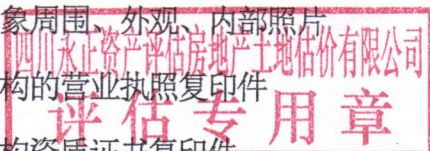 象周围、外观、内部照片
四川永正资产评估房地产土地估价有限公司
构的营业执照复印件
评估专用章
构资质证书复印件